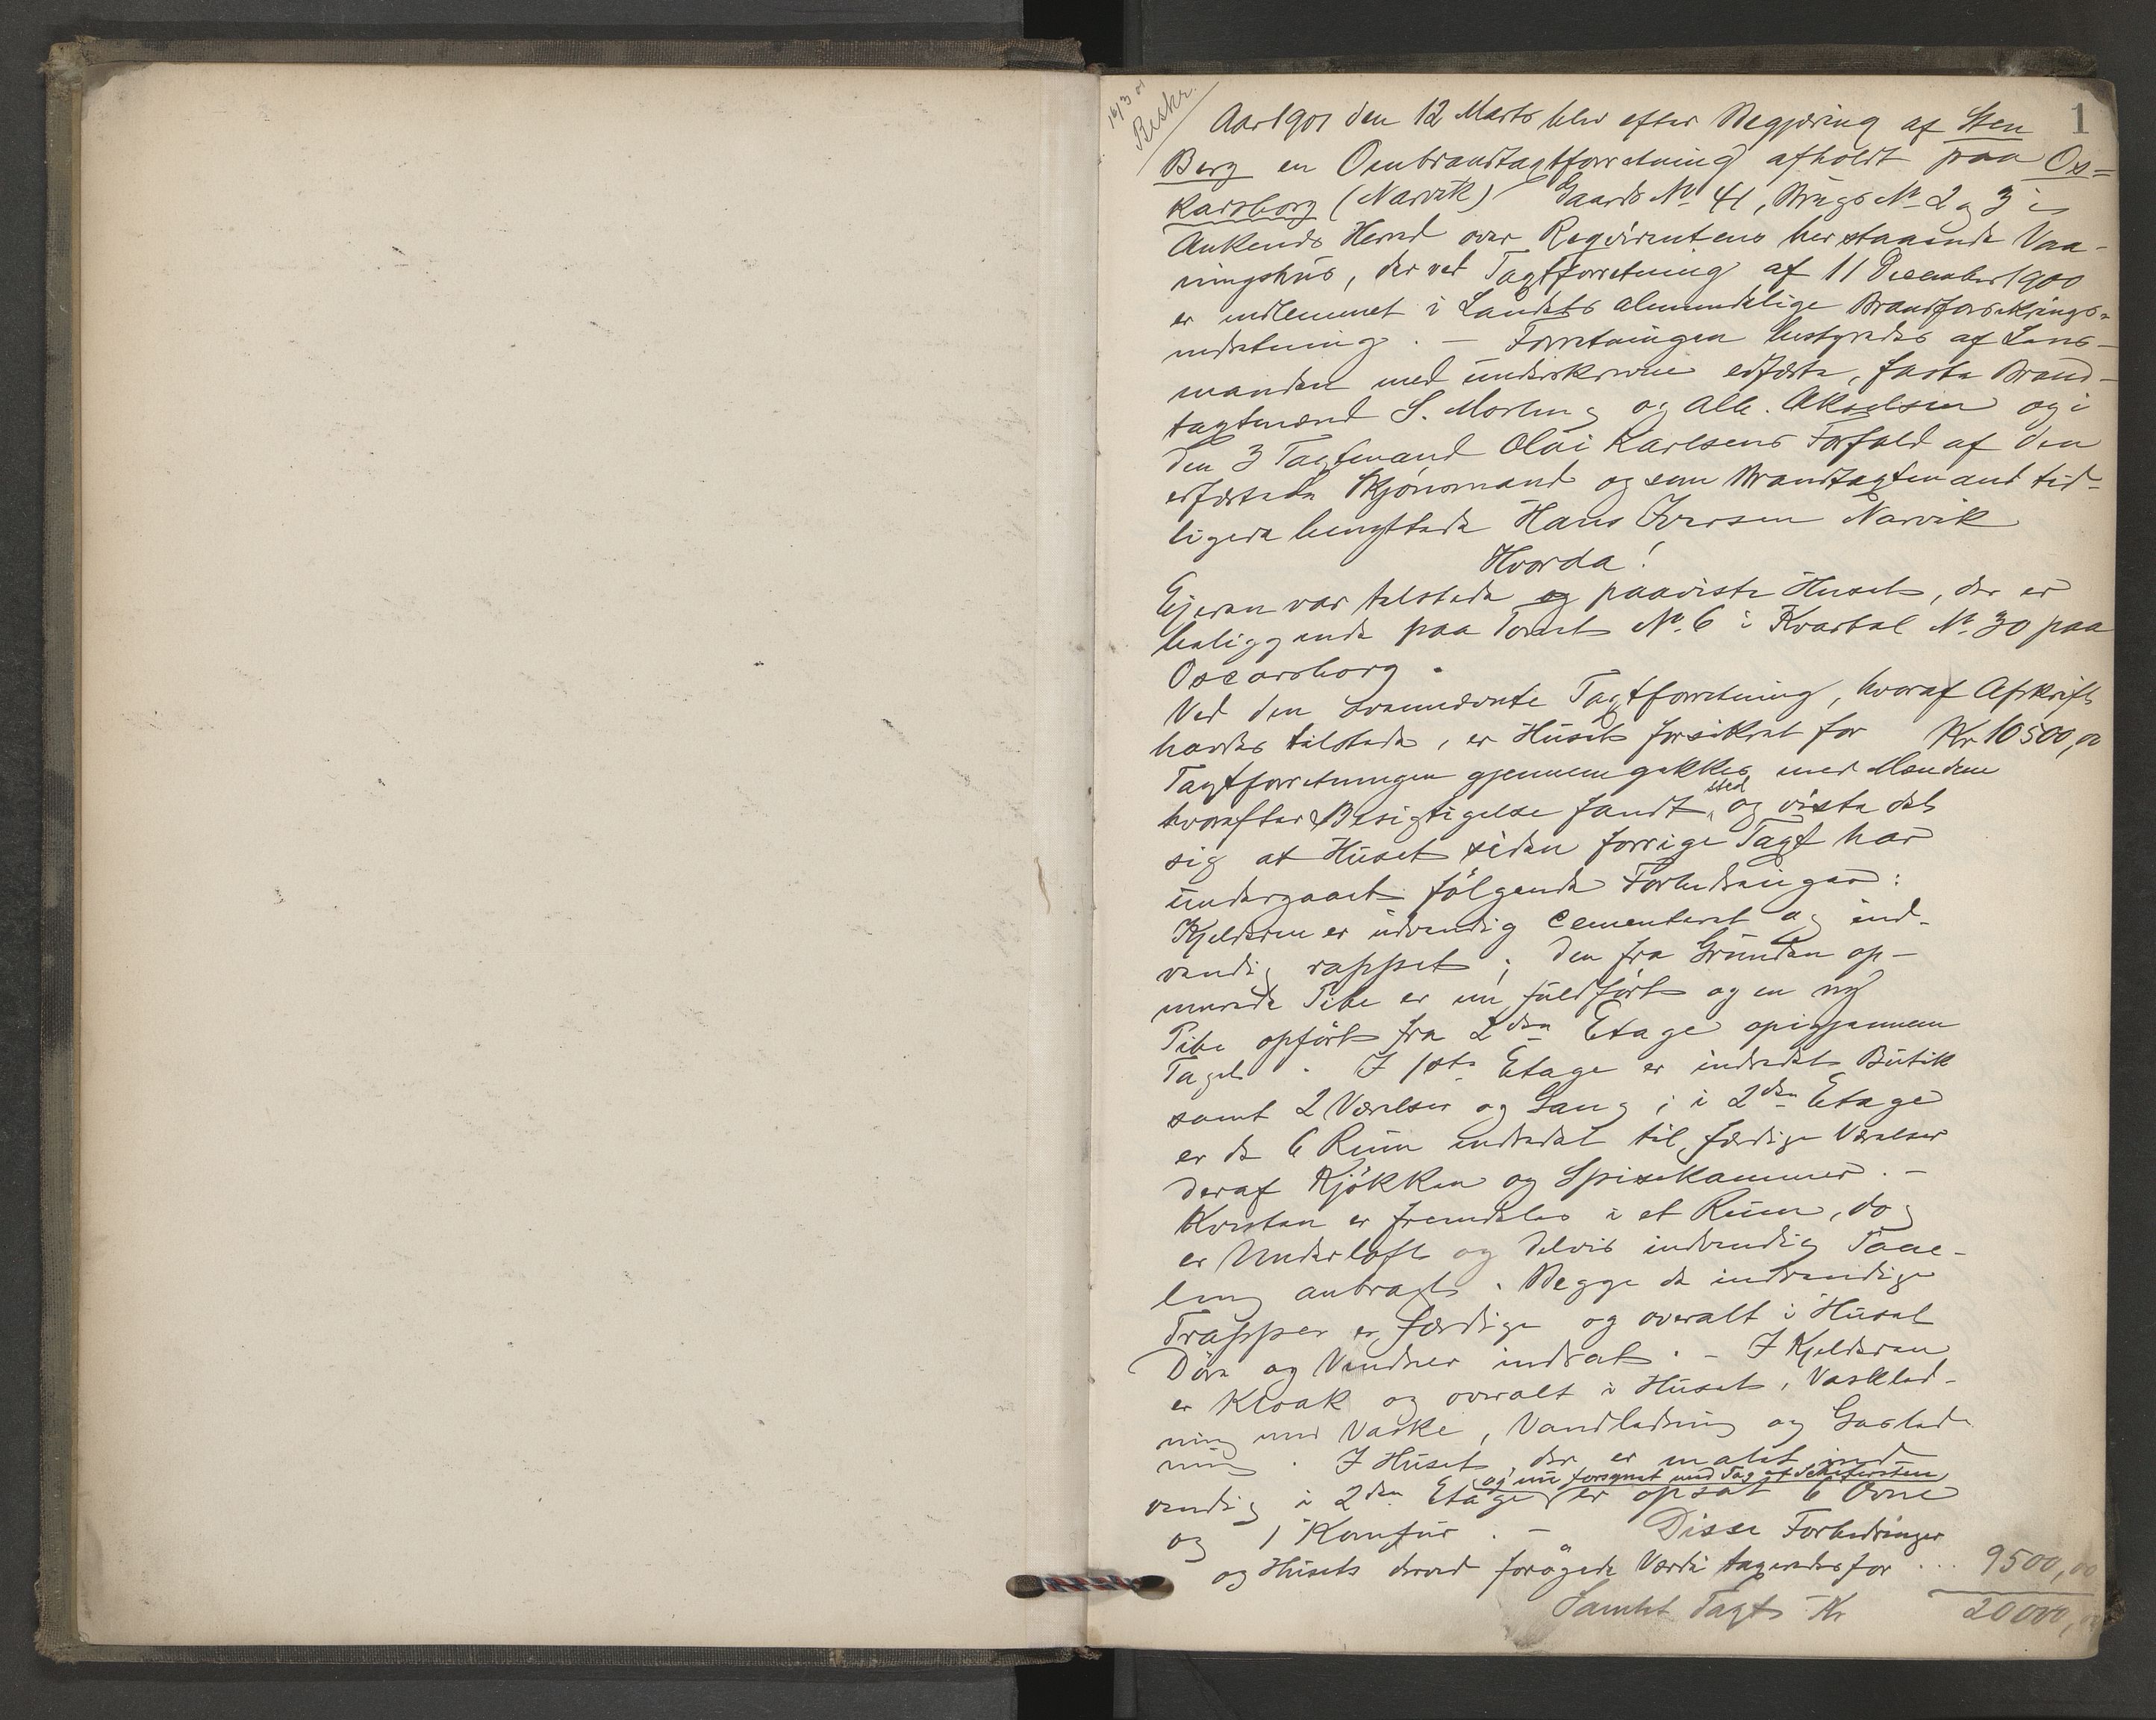 1
16/3 01
Beskr.
Aar 1901 den 12 Marts blev efter Begjæring af Sten
Berg en Ombrandtagtforretning afholdt paa Os=
karsborg (Narvik) Gaards No 41, Brugs No 2 og 3 i
Ankenes Herred over Reqvirentens herstaaende Vaa-
ningshus, der ved Tagtforretning af 11 December 1900
er indlemmet i Landets almindelige Brandforsikrings-
indretning. - Forretningen bestyredes af Lens-
manden med underskrevne edfæste, faste Brand-
tagtmænd S. Morling og Alb. Akselsen og i
den 3 Tagtmand Olai Karlsens Forfald af den
edfæstede Skjönsmand og som Brandtagtmand tid-
ligere benyttede Hans Iversen Narvik
Hvorda!
Ejeren var tilstede og paaviste Huset, der er
beliggende paa Tomt No 6 i Kvartal No 30 paa
Oscarsborg.
Ved den ovennævnte Tagtforretning, hvoraf Afskrift
havdes tilstede, er Huset forsikret for Kr 10500,00
Tagtforretningen gjennemgikkes med Mændene
hvorefter Besigtigelse fandt sted og viste det
sig at Huset siden forrige Tagt har
undergaaet fölgende Forbedringer:
Kjelderen er udvendig cementeret og ind-
vendig rappet; den fra Grunden op-
murede Pibe er nu fuldfört og en ny
Pibe opfört fra 2den Etage opigjennem
Taget. I 1ste Etage er indredet Butik
samt 2 Værelser og Gang; i 2den Etage
er de 6 Rum indredet til færdige Værelser
deraf Kjökken og Spisekammer. -
Kvisten er fremdeles i et Rum, dog
er Underloft og delvis indvendig Paae-
ling anbragt. Begge de indvendige
Trapper er færdige og overalt i Huset
Döre og Vinduer indsat. - I Kjelderen
er Kloak og overalt i Huset, Vaskled-
ning med Vaske, Vandledning og Gasled
ning. I Huset, der er malet ind
vendig i 2den Etage og nu forsynet med Tag af Skifersten er opsat 6 Ovne
og 1 Komfur. - Disse Forbedringer
og Husets derved forögede Værdi taxeredes for ... 9500,00
Samlet Tagt Kr 20000,00